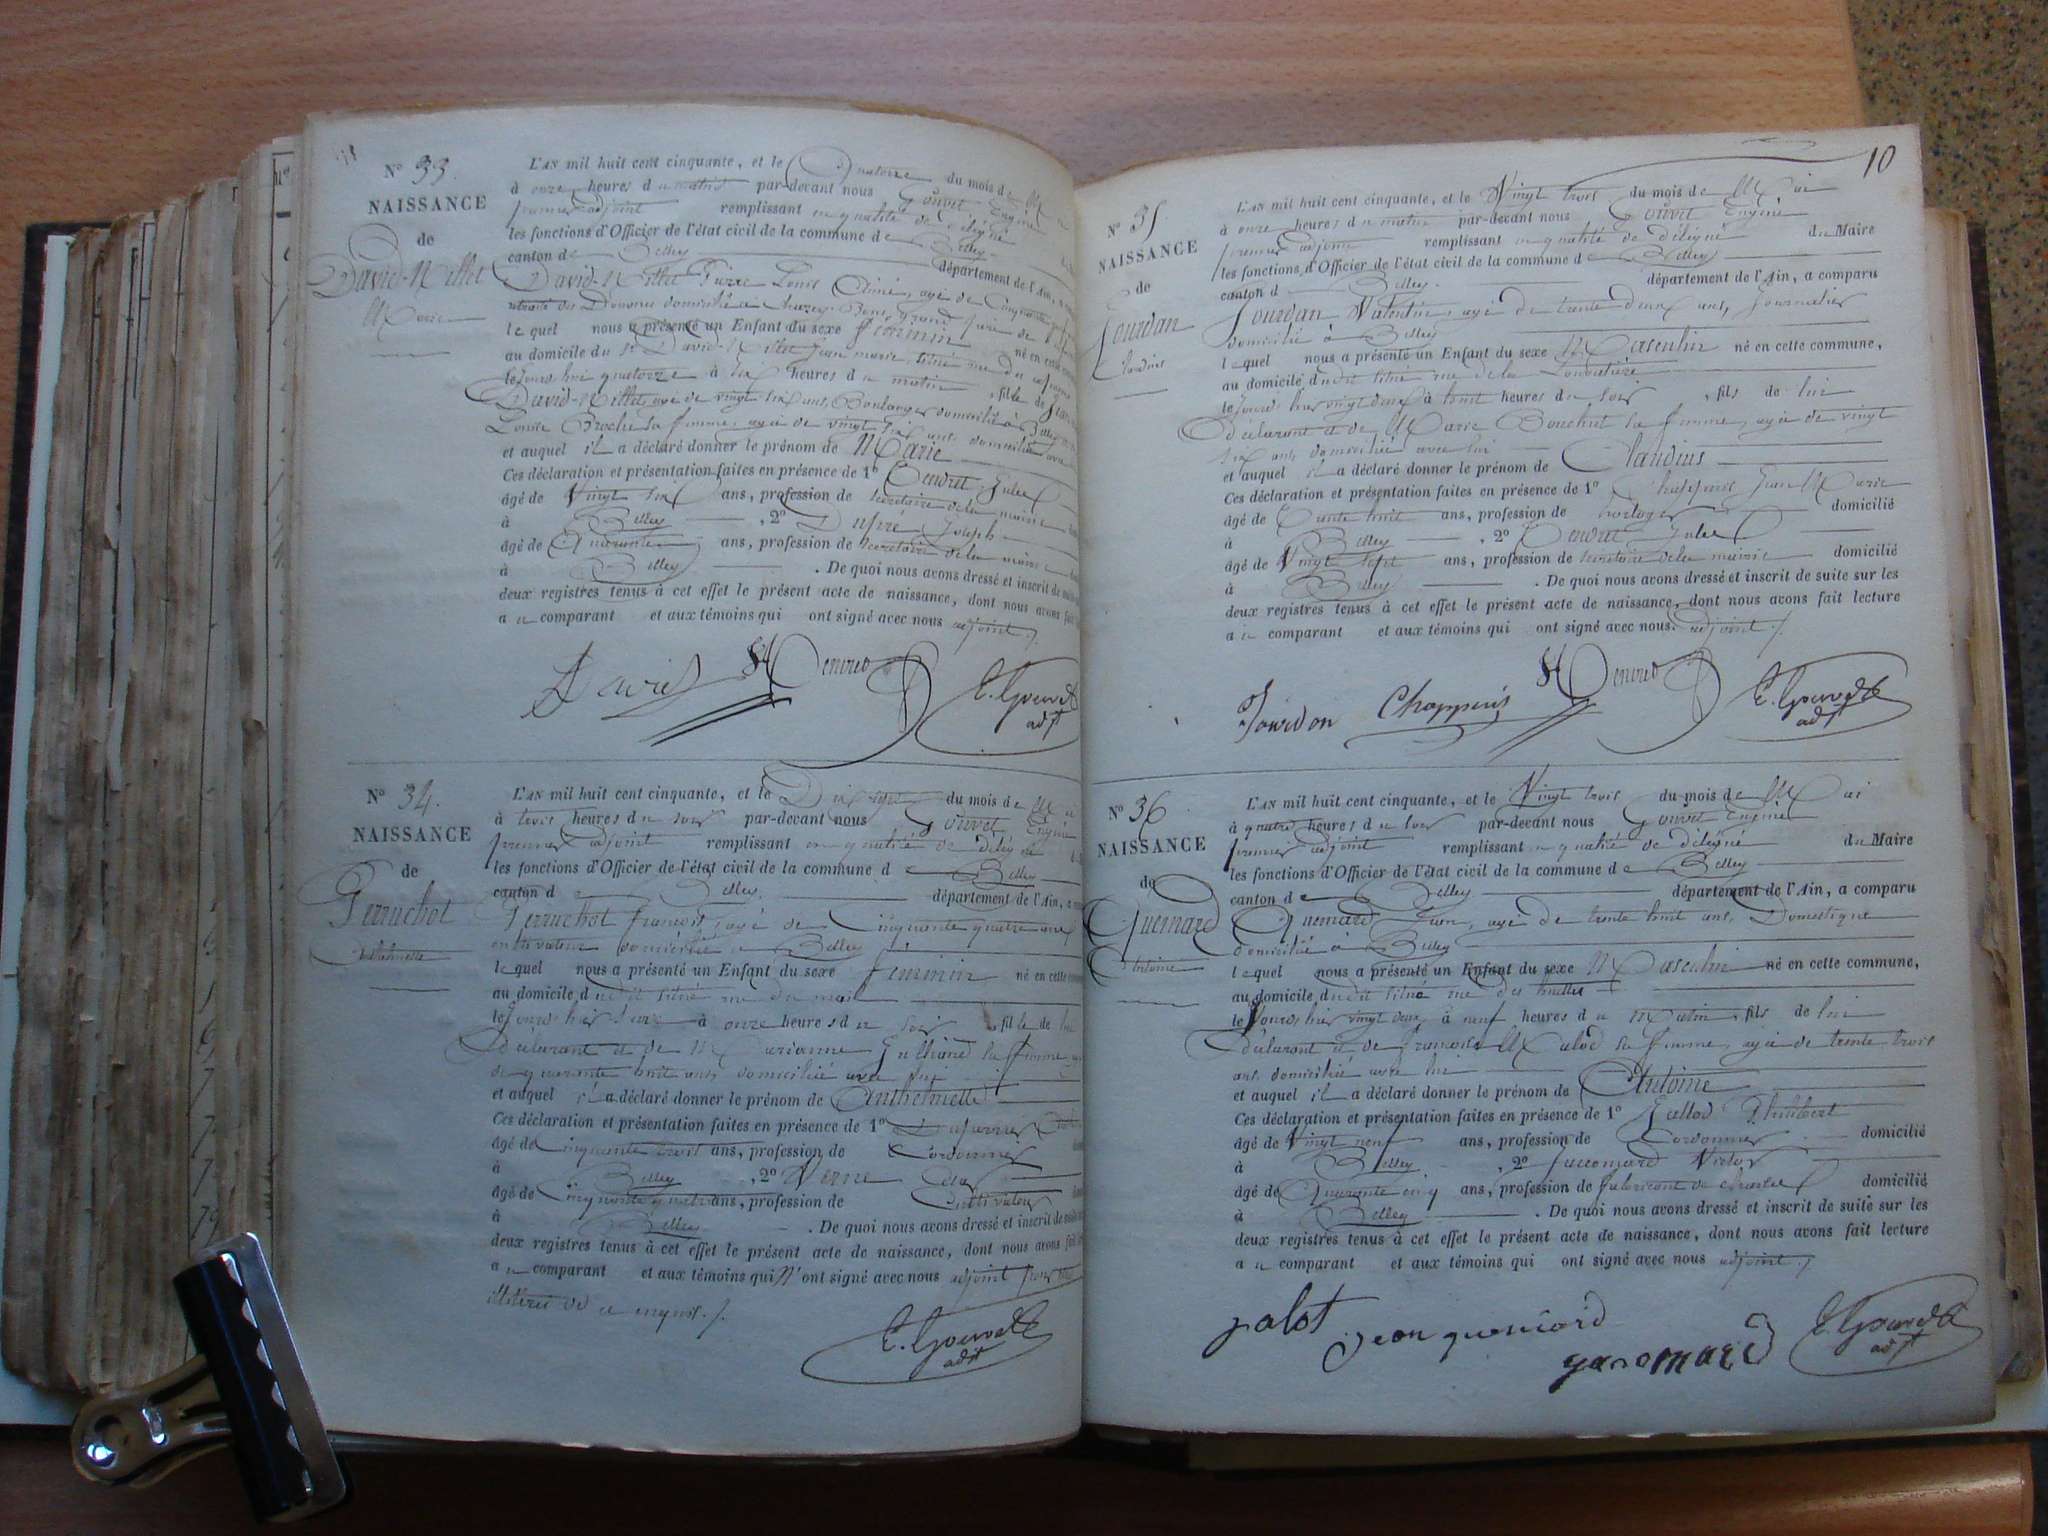 N° 33.
NAISSANCE
de
David-Millet
Marie
L'AN mil huit cent cinquante, et le Quatorze du mois de
à onze heures du matin par-devant nous Gouvet Eugène
premier adjoint remplissant en qualité de délégué
les fonctions d'Officier de l'état civil de la commune de Belley
canton de Belley département de l'Ain,
David-Millet Pierre Louis Aimé, agé de Cinquante
des Douanes domicilié à grand père de
lequel nous a présenté un Enfant du sexe féminin né en cette
au domicile du Sr David-Millet Jean marie, situé rue du
le jourd'hui quatorze à six heures du matin, fille de
David-Millet, agé de vingt six ans, Boulanger domicilié à Belley
Louise sa femme, agée de vingt six ans, domiciliée avec
et auquel il a déclaré donner le prénom de Marie
Ces déclaration et présentation faites en présence de 1° Jules
âgé de Vingt six ans, profession de secrétaire de la mairie
à Belley, 2° Dupré Joseph
âgé de Quarante ans, profession de secrétaire de la mairie
à Belley. De quoi nous avons dressé et inscrit de
deux registres tenus à cet effet le présent acte de naissance, dont nous avons fait
au comparant et aux témoins qui ont signé avec nous adjoint ./.
David E. Gouvet
adjt
N° 34.
NAISSANCE
de
Perruchot
Anthelmette
L'AN mil huit cent cinquante, et le Dix sept du mois de
à trois heures du soir par-devant nous Gouvet Eugène
premier adjoint remplissant en qualité de délégué
les fonctions d'Officier de l'état civil de la commune de Belley
canton de Belley département de l'Ain,
Perruchot françois, agé de Cinquante quatre ans
cultivateur domicilié à Belley
lequel nous a présenté un Enfant du sexe féminin né en cette
au domicile dudit situé rue du mail
le jourd'hier seize à onze heures du soir, fille de lui
déclarant et de Marianne sa femme,
de quarante ans, domiciliée avec lui
et auquel il a déclaré donner le prénom de Anthelmette
Ces déclaration et présentation faites en présence de 1°
âgé de cinquante trois ans, profession de Cordonnier
à Belley, 2° Verne
âgé de Cinquante quatre ans, profession de Cultivateur
à Belley. De quoi nous avons dressé et inscrit de suite
deux registres tenus à cet effet le présent acte de naissance, dont nous avons fait
au comparant et aux témoins qui n'ont signé avec nous adjoint pour être
illettrés de ce enquis ./.
E. Gouvet
adjt
10
N° 35.
NAISSANCE
de
Jourdan
Claudius
L'AN mil huit cent cinquante, et le Vingt trois du mois de Mai
à onze heures du matin par-devant nous Gouvet Eugène
premier adjoint remplissant en qualité de délégué du Maire
les fonctions d'Officier de l'état civil de la commune de Belley
canton de Belley département de l'Ain, a comparu
Jourdan Valentin, agé de trente deux ans, Journalier
domicilié à Belley
lequel nous a présenté un Enfant du sexe Masculin né en cette commune,
au domicile dudit situé rue de la
le jourd'hier vingt deux à huit heures du soir, fils de lui
déclarant et de Marie Bouchut sa femme, agée de vingt
six ans domiciliée avec lui
et auquel il a déclaré donner le prénom de Claudius
Ces déclaration et présentation faites en présence de 1° Jean Marie
âgé de Trente huit ans, profession de horloger domicilié
à Belley, 2° Jules
âgé de Vingt sept ans, profession de secrétaire de la mairie domicilié
à Belley. De quoi nous avons dressé et inscrit de suite sur les
deux registres tenus à cet effet le présent acte de naissance, dont nous avons fait lecture
au comparant et aux témoins qui ont signé avec nous. adjoint ./.
Jourdon E. Gouvet
adjt
N° 36
NAISSANCE
de
Quemard
Antoine
L'AN mil huit cent cinquante, et le Vingt trois du mois de Mai
à quatre heures du soir par-devant nous Gouvet Eugène
premier adjoint remplissant en qualité de délégué du Maire
les fonctions d'Officier de l'état civil de la commune de Belley
canton de Belley département de l'Ain, a comparu
Quemard Jean, agé de trente huit ans, Domestique
domicilié à Belley
lequel nous a présenté un Enfant du sexe Masculin né en cette commune,
au domicile dudit situé rue des
le jourd'hier vingt deux à neuf heures du matin, fils de lui
déclarant et de françoise sa femme, agée de trente trois
ans, domiciliée avec lui
et auquel il a déclaré donner le prénom de Antoine
Ces déclaration et présentation faites en présence de 1° Philibert
âgé de Vingt neuf ans, profession de Cordonnier domicilié
à Belley, 2° Victor
âgé de Quarante cinq ans, profession de fabricant de domicilié
à Belley. De quoi nous avons dressé et inscrit de suite sur les
deux registres tenus à cet effet le présent acte de naissance, dont nous avons fait lecture
au comparant et aux témoins qui ont signé avec nous adjoint ./.
jalot jean E. Gouvet
adjt